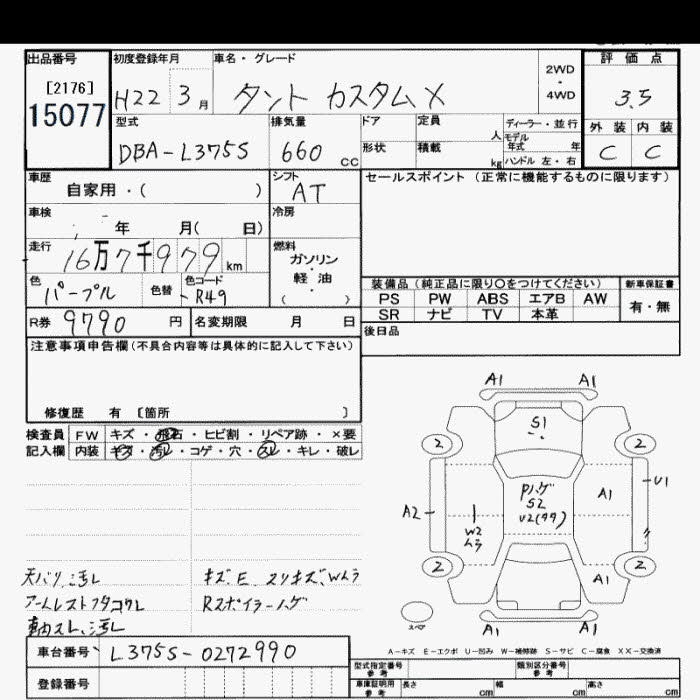 出品番号 初度登録年月 車名・グレード 評価点
[2176] 2WD
・
4WD
15077 H22 3月 タント カスタム X 3.5
型式 排気量 ドア 定員 ディーラー・並行 外装 内装
人 モデル
年式 年
DBA-L375S 660 cc 形状 積載 kg ハンドル 左・右 C C
車歴 シフト セールスポイント (正常に機能するものに限ります)
自家用・( ) AT
車検 冷房
年 月( 日)
走行 燃料
16万7千979km ガソリン
・
軽油
・
( )
色 色替 色コード 装備品 (純正品に限り〇をつけてください) 新車保証書
パープル R49 PS PW ABS エアB AW 有・無
SR ナビ TV 本革
R券 9790 円 名変期限 月 日 後日品
注意事項申告欄(不具合内容等は具体的に記入して下さい)
修復歴 有 〔箇所 〕
検査員 FW キズ・飛石・ヒビ割・リペア跡・×要
記入欄 内装 キズ・汚レ・コゲ・穴・スレ・キレ・破レ
A1 A1
S1
2 2
Pハゲ
S2
U2(タタ)
A1 U1
A2 W2
ムラ
2 2
A1
A1 A1
スペア
天バリ汚レ キズ、E、スリキズ、Wムラ
アームレストフタコワレ Rスポイラーハゲ
スレ、汚レ
A-キズ E-エクボ U-凹み W-補修跡 S-サビ C-腐食 XX-交換済
車台番号 L375S-0272990
型式指定番号
参考 類別区分番号
参考
登録番号 車庫証明用
参考 長さ cm 幅 cm 高さ cm